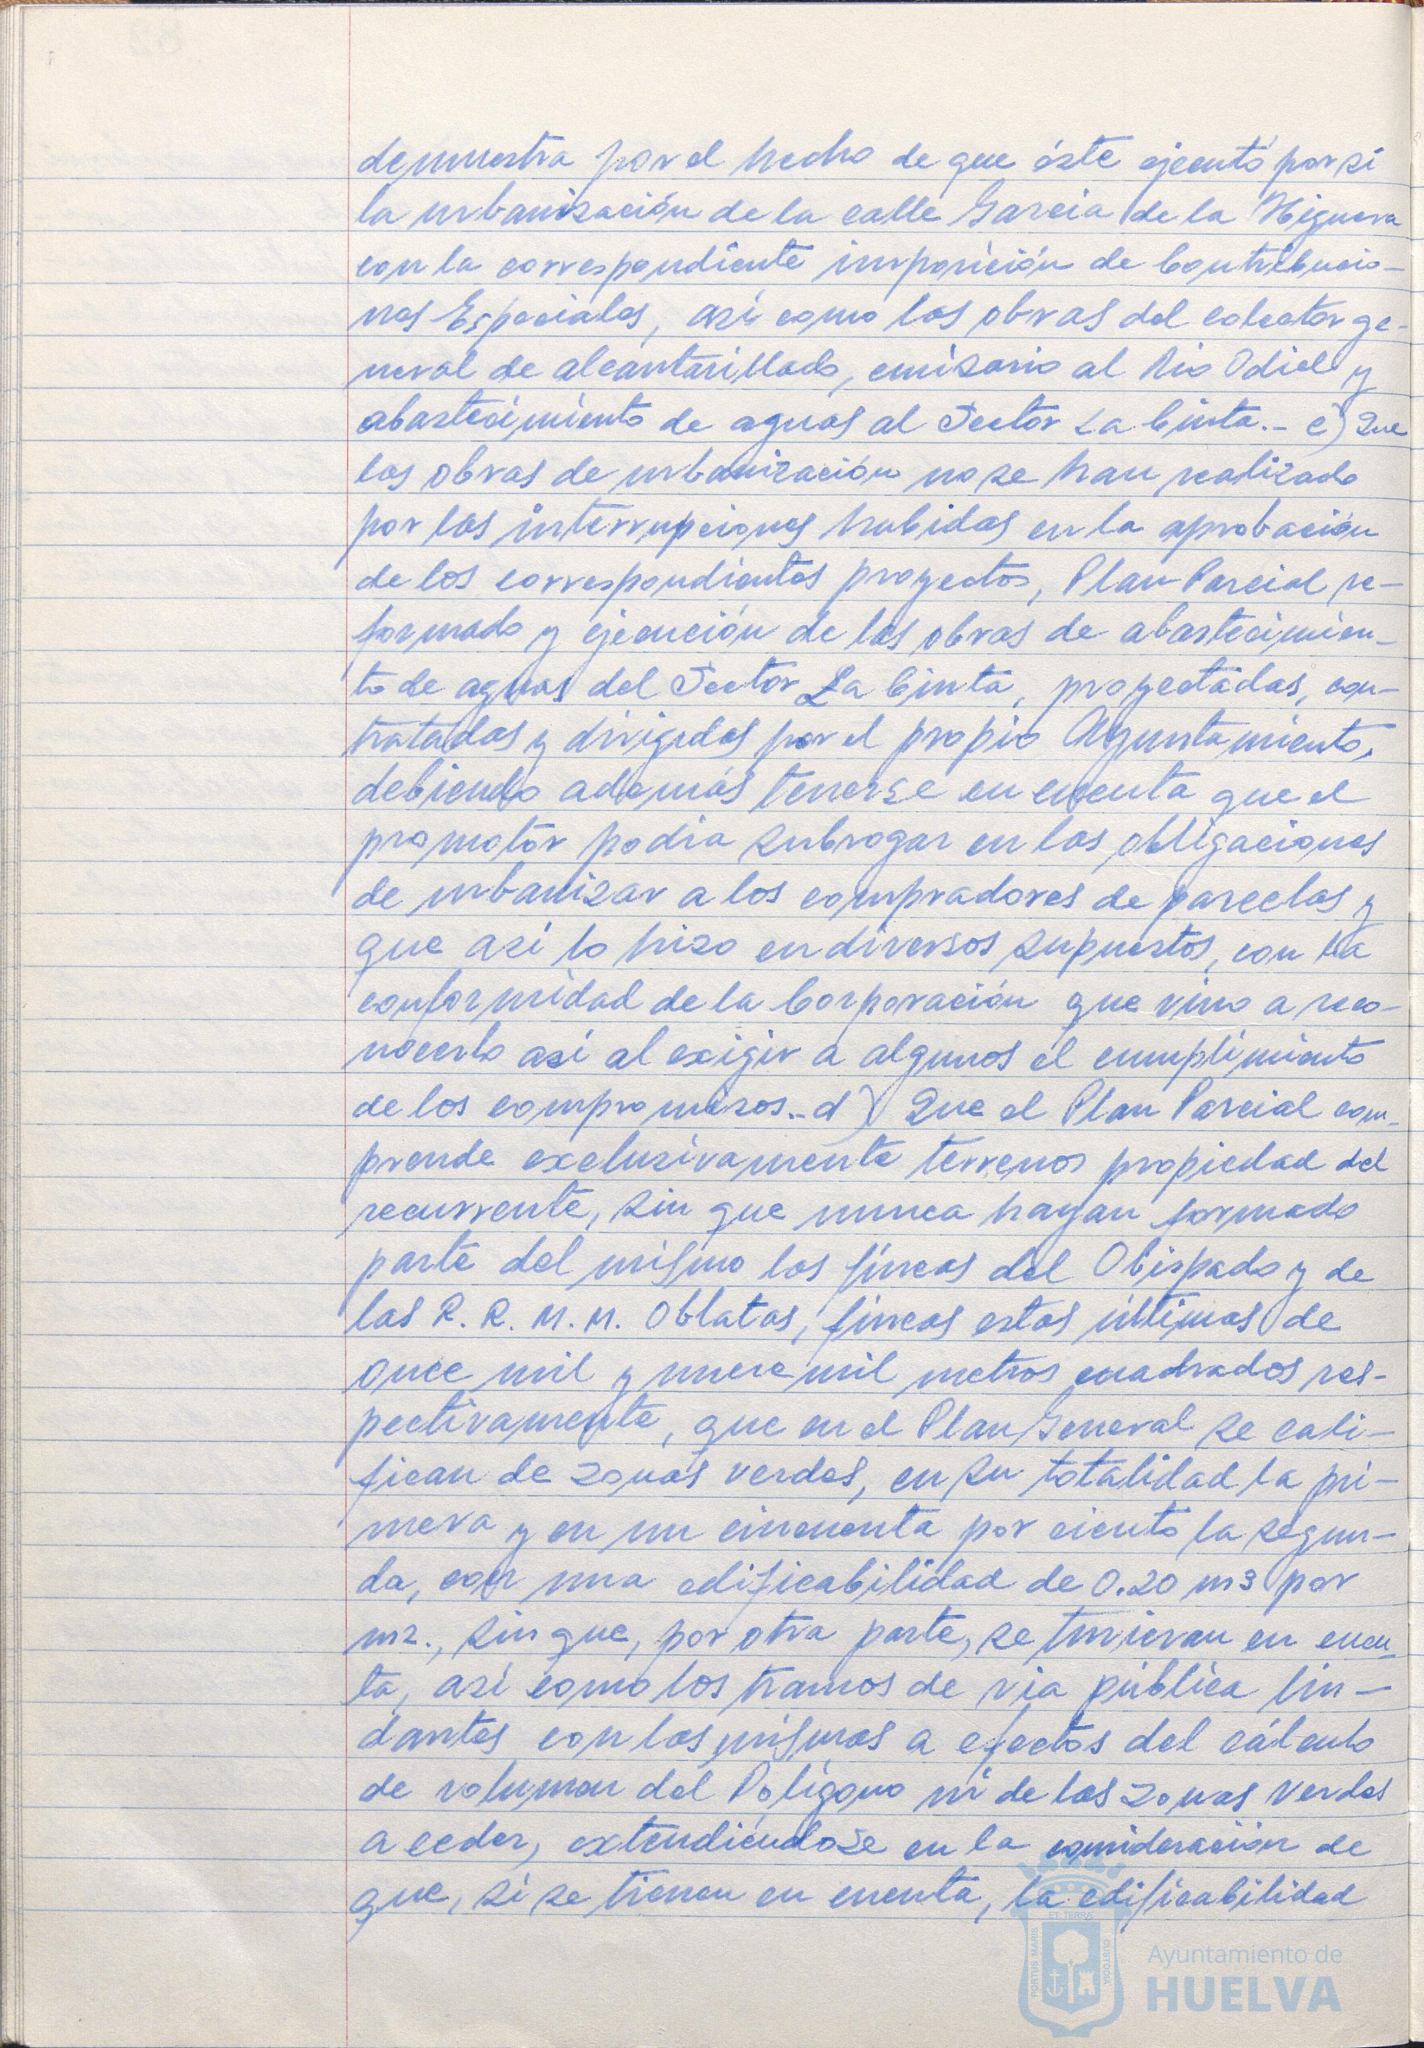 demuestra por el hecho de que éste ejecutó por sí
la urbanización de la calle Garcia de la Higuera
con la correspondiente imposición de Contribucio-
nes Especiales, asi como las obras del colector ge-
neral de alcantarillado, emisario al Rio Odiel y
abastecimiento de aguas al Sector La Cinta.- c) Que
las obras de urbanización no se han realizado
por las interrupciones habidas en la aprobación
de los correspondientes proyectos, Plan Parcial re-
formado y ejecución de las obras de abastecimien-
to de aguas del Sector La Cinta, proyectadas, con-
tratadas y dirigidas por el propio Ayuntamiento,
debiendo además tenerse en cuenta que el
promotor podía subrogar en las obligaciones
de urbanizar a los compradores de parcelas y
que así lo hizo en diversos supuestos, con la
conformidad de la Corporación que vino a reco-
nocerlo así al exigir a algunos el cumplimiento
de los compromisos.- d) Que el Plan Parcial com-
prende exclusivamente terrenos propiedad del
recurrente, sin que nunca hayan formado
parte del mismo las fincas del Obispado y de
las R. R. M. M. Oblatas, fincas estas últimas de
once mil y nueve mil metros cuadrados res-
pectivamente, que en el Plan General se cali-
fican de zonas verdes, en su totalidad la pri-
mera y en un cincuenta por ciento la segun-
da, con una edificabilidad de 0.20 m3 por
m2., sin que, por otra parte, se tuvieran en cuen-
ta, así como los tramos de via pública lin-
dantes con las mismas a efectos del cálculo
de volumen del Polígono ni de las zonas verdes
a ceder, extendiéndose en la consideración de
que, si se tienen en cuenta, la edificabilidad
PORTUS MARIS
ET TERRÆ
CUSTODIA
Ayuntamiento de
HUELVA